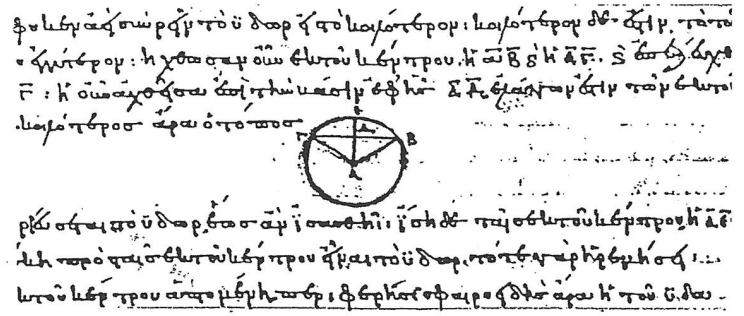 φυκεν ἀεὶ συρρεῖν τὸ ὕδωρ εἰς τὸ κοιλότερον: κοιλότερον δέ ἐστιν τὸ το
ἐγγύτερον: ἤχθωσαν οὖν ἐκ τοῦ κέντρου ἡ ΑΒ ϗ ἡ ΑΓ. ϗ ἐπεζεύχθ
Γ: ἡ οὖν ἀχθεῖσα ἐπὶ τὴν βάσιν ἐφ ἧς ΔΑ, ἐλάττων ἐστιν τῶν ἐκ τοῦ
κοιλότερος ἄρα ὁ τόπος
Ε
Γ Δ Β
Α
ρεύσεται τὸ ὕδωρ, ἕως ἂν ἰσασθῆι: ἴση δὲ ταῖς ἐκ τοῦ κέντρου, ἡ ΑΕ
κη πρὸς ταῖς ἐκ τοῦ κέντρου εἶναι τὸ ὕδωρ. τότε γὰρ ἠρεμήσει:
κ τοῦ κέντρου ἁπτομένη, περιφερής: σφαιροειδὴς ἄρα ἡ τοῦ ὕδα